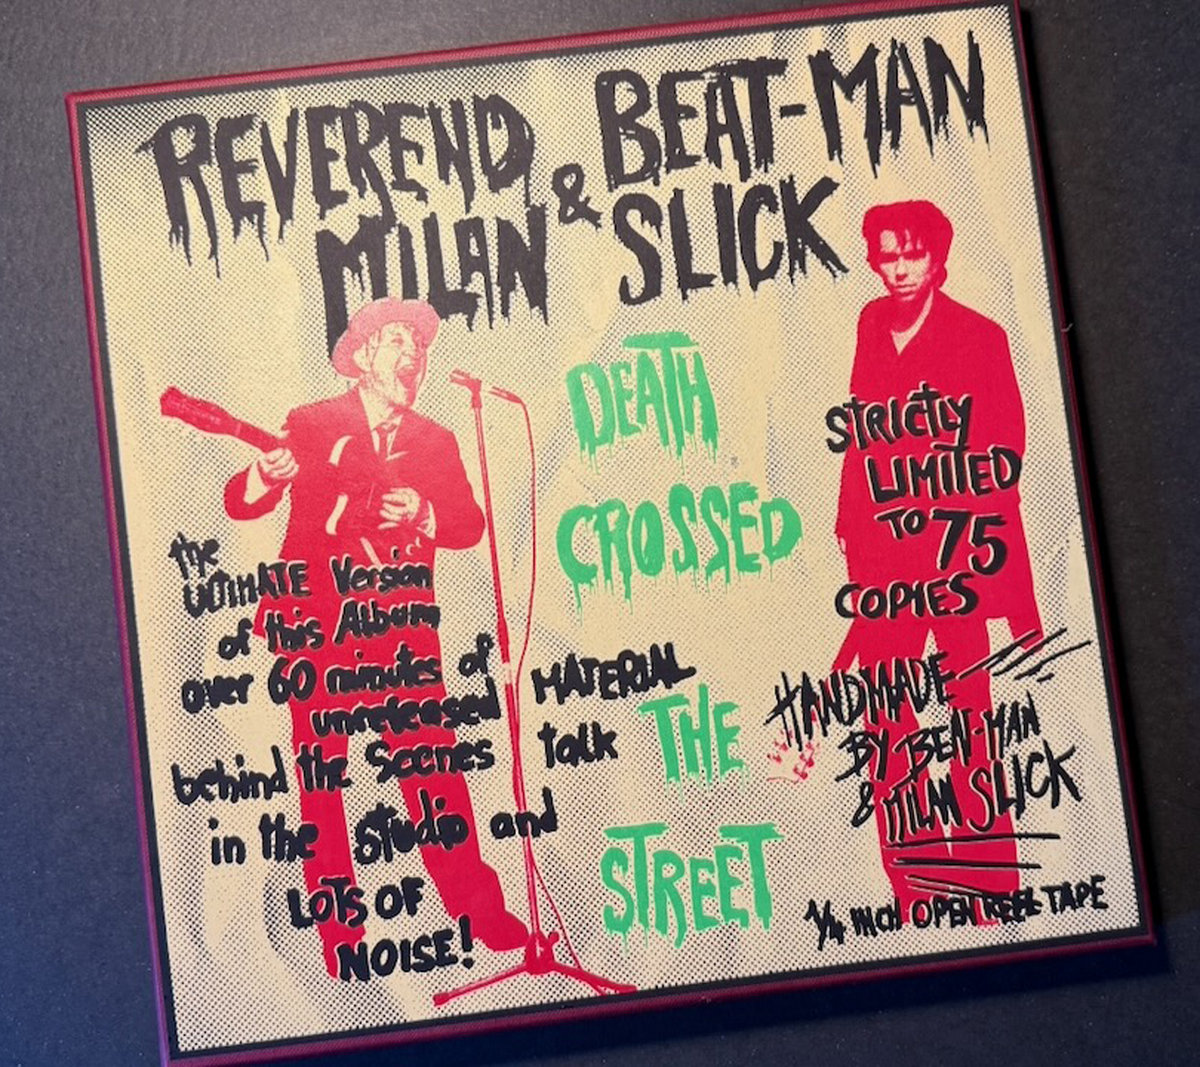 REVEREND BEAT-MAN
& MILAN SLICK
DEATH
CROSSED
THE
STREET
the
ULTIMATE Version
of this Album
over 60 minutes of
unreleased MATERIAL
behind the Scenes talk
in the Studio and
LOTS OF
NOISE!
STRICTLY
LIMITED
TO 75
COPIES
HANDMADE
BY BEAT-MAN
& MILAN SLICK
1/4 INCH OPEN REEL TAPE